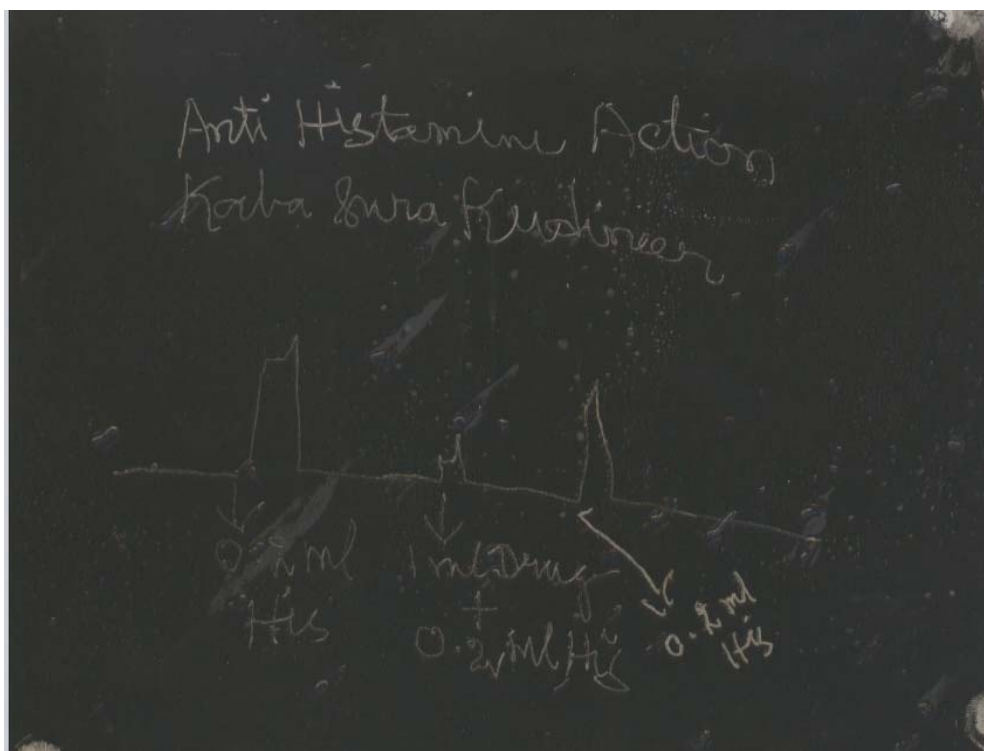 Anti Histamine Action
Kaba Sura Kudineer
0.2 ml
His
1 ml Drug
+
0.2 ml His
0.2 ml
His